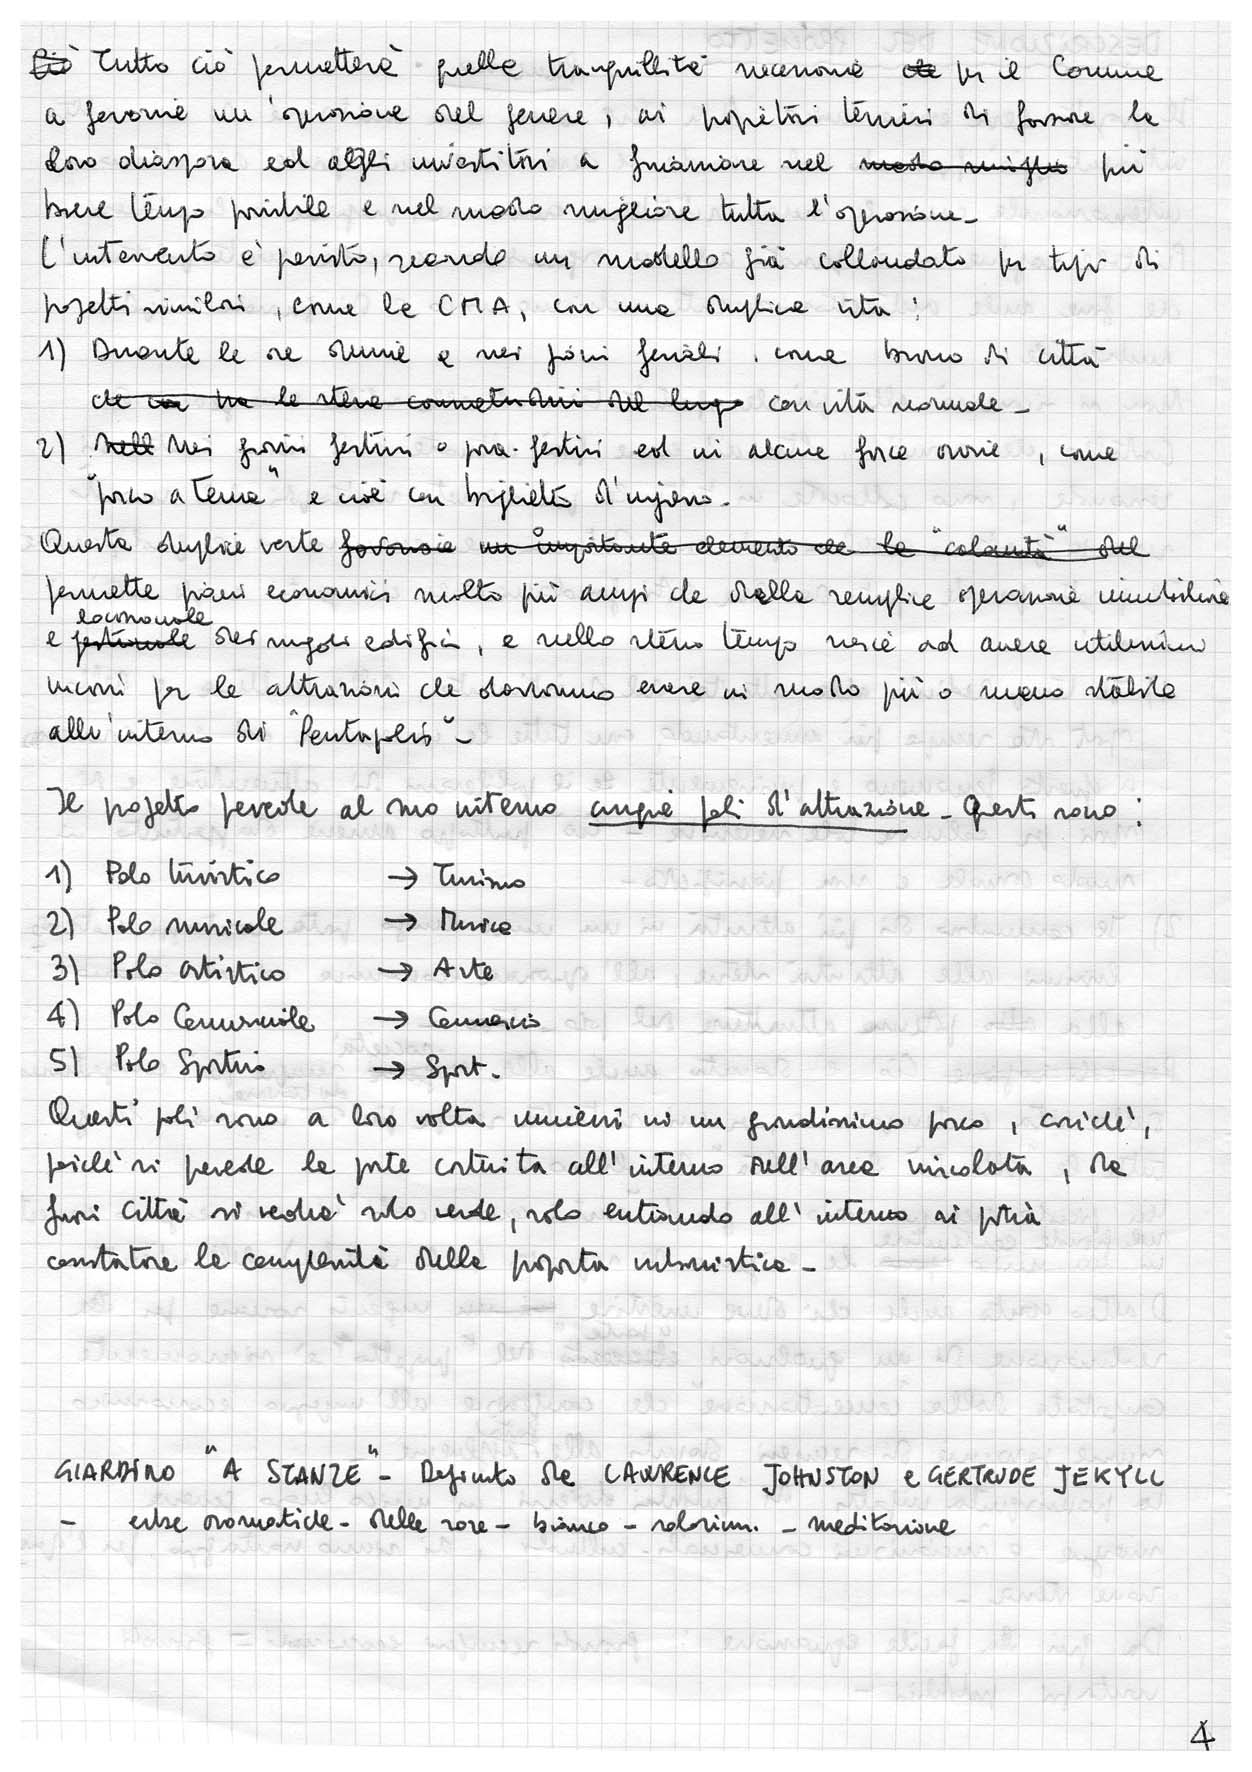 Ciò Tutto ciò permetterà quella tranquillità necessaria che per il Comune
a favorire un'operazione del genere, ai proprietari terrieri di fare la
loro diaspora ed agli investitori a finanziare nel modo miglio più
breve tempo possibile e nel modo migliore tutta l'operazione -
L'intervento è previsto, secondo un modello già collaudato per tipi di
progetti similari, come la CMA, con una duplice vita:
1) Durante le ore diurne e nei giorni feriali, come brano di città
che con ha le stesse connotazioni del luogo con vita normale -
2) Nell Nei giorni festivi o pre-festivi ed in alcune fasce orarie, come
"parco a tema" e cioè con biglietto d'ingresso -
Questa duplice veste favorisce un importante elemento che la "colonità" del
permette piani economici molto più ampi che dalla semplice operazione immobiliare
e gestionale locazionale dei singoli edifici, e nello stesso tempo riesce ad avere utilissimi
incassi per le attrazioni che dovranno essere in modo più o meno stabile
all'interno di "Pentapolis" -
Il progetto prevede al suo interno cinque poli d'attrazione - Questi sono:
1) Polo turistico → Turismo
2) Polo musicale → Musica
3) Polo artistico → Arte
4) Polo Commerciale → Commercio
5) Polo Sportivo → Sport -
Questi poli sono a loro volta immersi in un grandissimo parco, cosichè,
poichè si prevede la parte costruita all'interno dell'area vincolata, da
fuori Città si vedrà solo verde, solo entrando all'interno si potrà
constatare la complessità della proposta urbanistica -
GIARDINO "A STANZE" - Definito da LAWRENCE JOHNSTON e GERTRUDE JEKYLL
- erbe aromatiche - delle rose - bianco - solarium. - meditazione
4